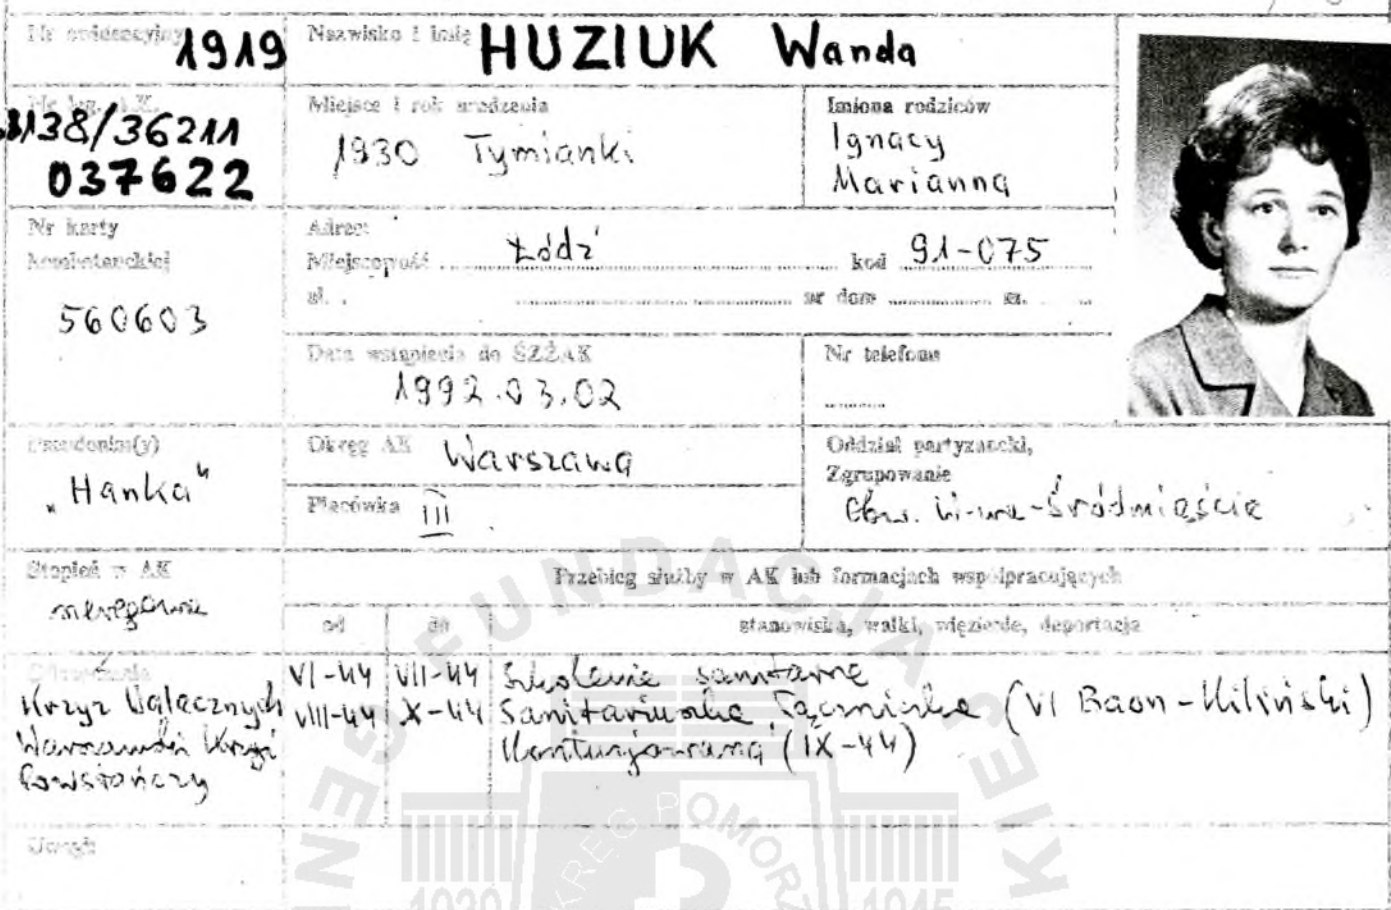 Nr ewidencyjny 1919
Nazwisko i imię HUZIUK Wanda
Nr leg. A.K.
3138/36211
037622
Miejsce i rok urodzenia
1930 Tymianki
Imiona rodziców
Ignacy
Marianna
Nr karty
kombatanckiej
560603
Adres:
Miejscowość Łódź kod 91-075
ul. nr dom m.
Data wstąpienia do ŚZŻAK
1992.03.02
Nr telefonu
Pseudonim(y)
„Hanka"
Okręg AK Warszawa
Placówka III
Oddział partyzancki,
Zgrupowanie
Obw. W-wa-Śródmieście
Stopień w AK
Przebieg służby w AK lub formacjach współpracujących
od do stanowiska, walki, więzienie, deportacja
Odznaczenia
Krzyż Walecznych
Warszawski Krzyż
Powstańczy
VI-44 VII-44 Szkolenie sanitarne
VIII-44 X-44 Sanitariuszka, Łączniczka (VI Baon-Kiliński)
Kontuzjowana (IX-44)
Uwagi:
FUNDACJA GEN KIEJ
OKRĘG POMORZ
1939 1945